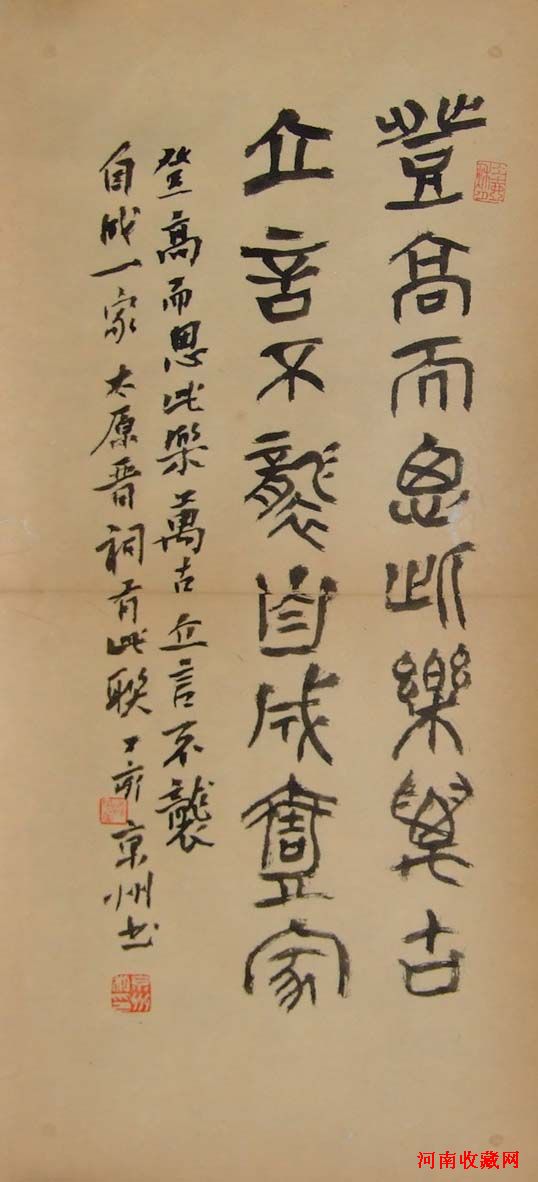 登高而思此樂萬古
立言不襲自成壹家
登高而思此樂萬古立言不襲
自成一家 太原晋祠有此联 丁亥 京州书
河南收藏网